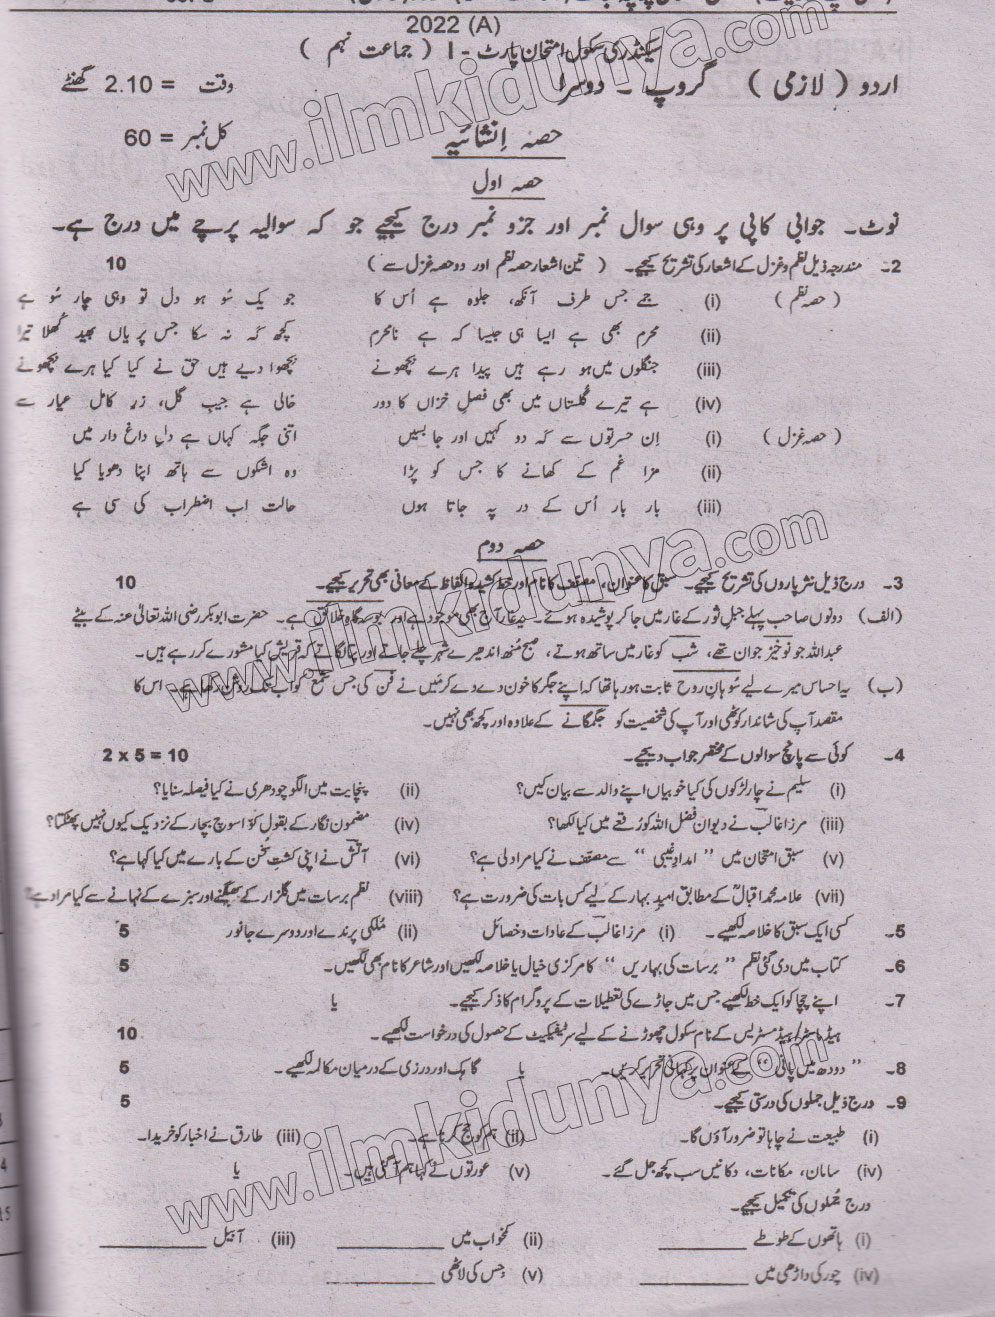 2022 (A)
سیکنڈری سکول امتحان پارٹ - I ( جماعت نہم )
اردو ( لازمی ) گروپ - دوسرا وقت = 2.10 گھنٹے
کل نمبر = 60
حصہ اِنشائیہ
حصہ اول
نوٹ۔ جوابی کاپی پر وہی سوال نمبر اور جزو نمبر درج کیجیے جو کہ سوالیہ پرچے میں درج ہے۔
2۔ مندرجہ ذیل نظم و غزل کے اشعار کی تشریح کیجیے۔ ( تین اشعار حصہ نظم اور دو حصہ غزل سے ) 10
( حصہ نظم ) (i) جس طرف آنکھ، جلوہ ہے اُس کا جو یک سُو ہو دل تو وہی چار سُو ہے
(ii) محرم بھی ہے ایسا ہی جیسا کہ ہے نامحرم کچھ کہہ نہ سکا جس پر یاں بھید کُھلا تیرا
(iii) جنگلوں میں ہو رہے ہیں پیدا ہرے بچھونے بچھوا دیے ہیں حق نے کیا کیا ہرے بچھونے
(iv) ہے تیرے گلستاں میں بھی فصلِ خزاں کا دور خالی ہے جیبِ گل، زرِ کامل عیار سے
( حصہ غزل ) (i) اِن حسرتوں سے کہہ دو کہیں اور جا بسیں اتنی جگہ کہاں ہے دلِ داغ دار میں
(ii) مزا غم کے کھانے کا جس کو پڑا وہ اشکوں سے ہاتھ اپنا دھویا کیا
(iii) بار بار اُس کے در پہ جاتا ہوں حالت اب اضطراب کی سی ہے
حصہ دوم
3۔ درج ذیل نثر پاروں کی تشریح کیجیے۔ سبق کا عنوان، مصنف کا نام اور خط کشیدہ الفاظ کے معانی بھی تحریر کیجیے۔ 10
(الف) دونوں صاحب پہلے جبلِ ثور کے غار میں جا کر پوشیدہ ہوئے۔ یہ غار آج بھی موجود ہے اور بوسہ گاہِ خلائق ہے۔ حضرت ابوبکر رضی اللہ تعالیٰ عنہ کے بیٹے
عبداللہ جو نوخیز جوان تھے، شب کو غار میں ساتھ ہوتے، صبح منھ اندھیرے شہر چلے جاتے اور پتا لگاتے کہ قریش کیا مشورے کر رہے ہیں۔
(ب) یہ احساس میرے لیے سُوہانِ روح ثابت ہو رہا تھا کہ اپنے جگر کا خون دے دے کر میں نے فن کی جس شمع کو اب تک روشن رکھا ہے، اس کا
مقصد آپ کی شاندار کوٹھی اور آپ کی شخصیت کو جگمگانے کے علاوہ اور کچھ بھی نہیں۔
4۔ کوئی سے پانچ سوالوں کے مختصر جواب دیجیے۔ 2 x 5 = 10
(i) سلیم نے چار لڑکوں کی کیا خوبیاں اپنے والد سے بیان کیں؟ (ii) پنچایت میں الگو چودھری نے کیا فیصلہ سنایا؟
(iii) مرزا غالب نے دیوان فضل اللہ کو رُقعے میں کیا لکھا؟ (iv) مضمون نگار کے بقول کوّا سوچ بچار کے نزدیک کیوں نہیں پھٹکتا؟
(v) سبق امتحان میں " امدادِ غیبی " سے مصنف نے کیا مراد لی ہے؟ (vi) آتش نے اپنی کشتِ سخن کے بارے میں کیا کہا ہے؟
(vii) علامہ محمد اقبالؒ کے مطابق امیدِ بہار کے لیے کس بات کی ضرورت ہے؟ (viii) نظم برسات میں گلزار کے بھیگنے اور سبزے کے نہانے سے کیا مراد ہے؟
5۔ کسی ایک سبق کا خلاصہ لکھیے۔ (i) مرزا غالب کے عادات و خصائل (ii) مُلکی پرندے اور دوسرے جانور 5
6۔ کتاب میں دی گئی نظم " برسات کی بہاریں " کا مرکزی خیال یا خلاصہ لکھیں اور شاعر کا نام بھی لکھیں۔ 5
7۔ اپنے چچا کو ایک خط لکھیے جس میں جاڑے کی تعطیلات کے پروگرام کا ذکر کیجیے۔ یا
ہیڈ ماسٹر/ہیڈ مسٹریس کے نام سکول چھوڑنے کے لیے سرٹیفکیٹ کے حصول کی درخواست لکھیے۔ 10
8۔ " دودھ میں پانی " کے عنوان پر کہانی تحریر کریں۔ یا گاہک اور درزی کے درمیان مکالمہ لکھیے۔ 5
9۔ درج ذیل جملوں کی درستی کیجیے۔ 5
(i) طبیعت نے چاہا تو ضرور آؤں گا۔ (ii) ہم کو حج کرنا ہے۔ (iii) طارق نے اخبار کو خریدا۔
(iv) سامان، مکانات، دکانیں سب کچھ جل گئے۔ (v) عورتوں نے کہا ہم آ گئی ہیں۔ یا
درج جملوں کی تکمیل کیجیے۔
(i) ہاتھوں کے طوطے ______ (ii) کمخواب میں ______ (iii) آ بیل ______
(iv) چور کی داڑھی میں ______ (v) جس کی لاٹھی ______
www.ilmkidunya.com
www.ilmkidunya.com
www.ilmkidunya.com